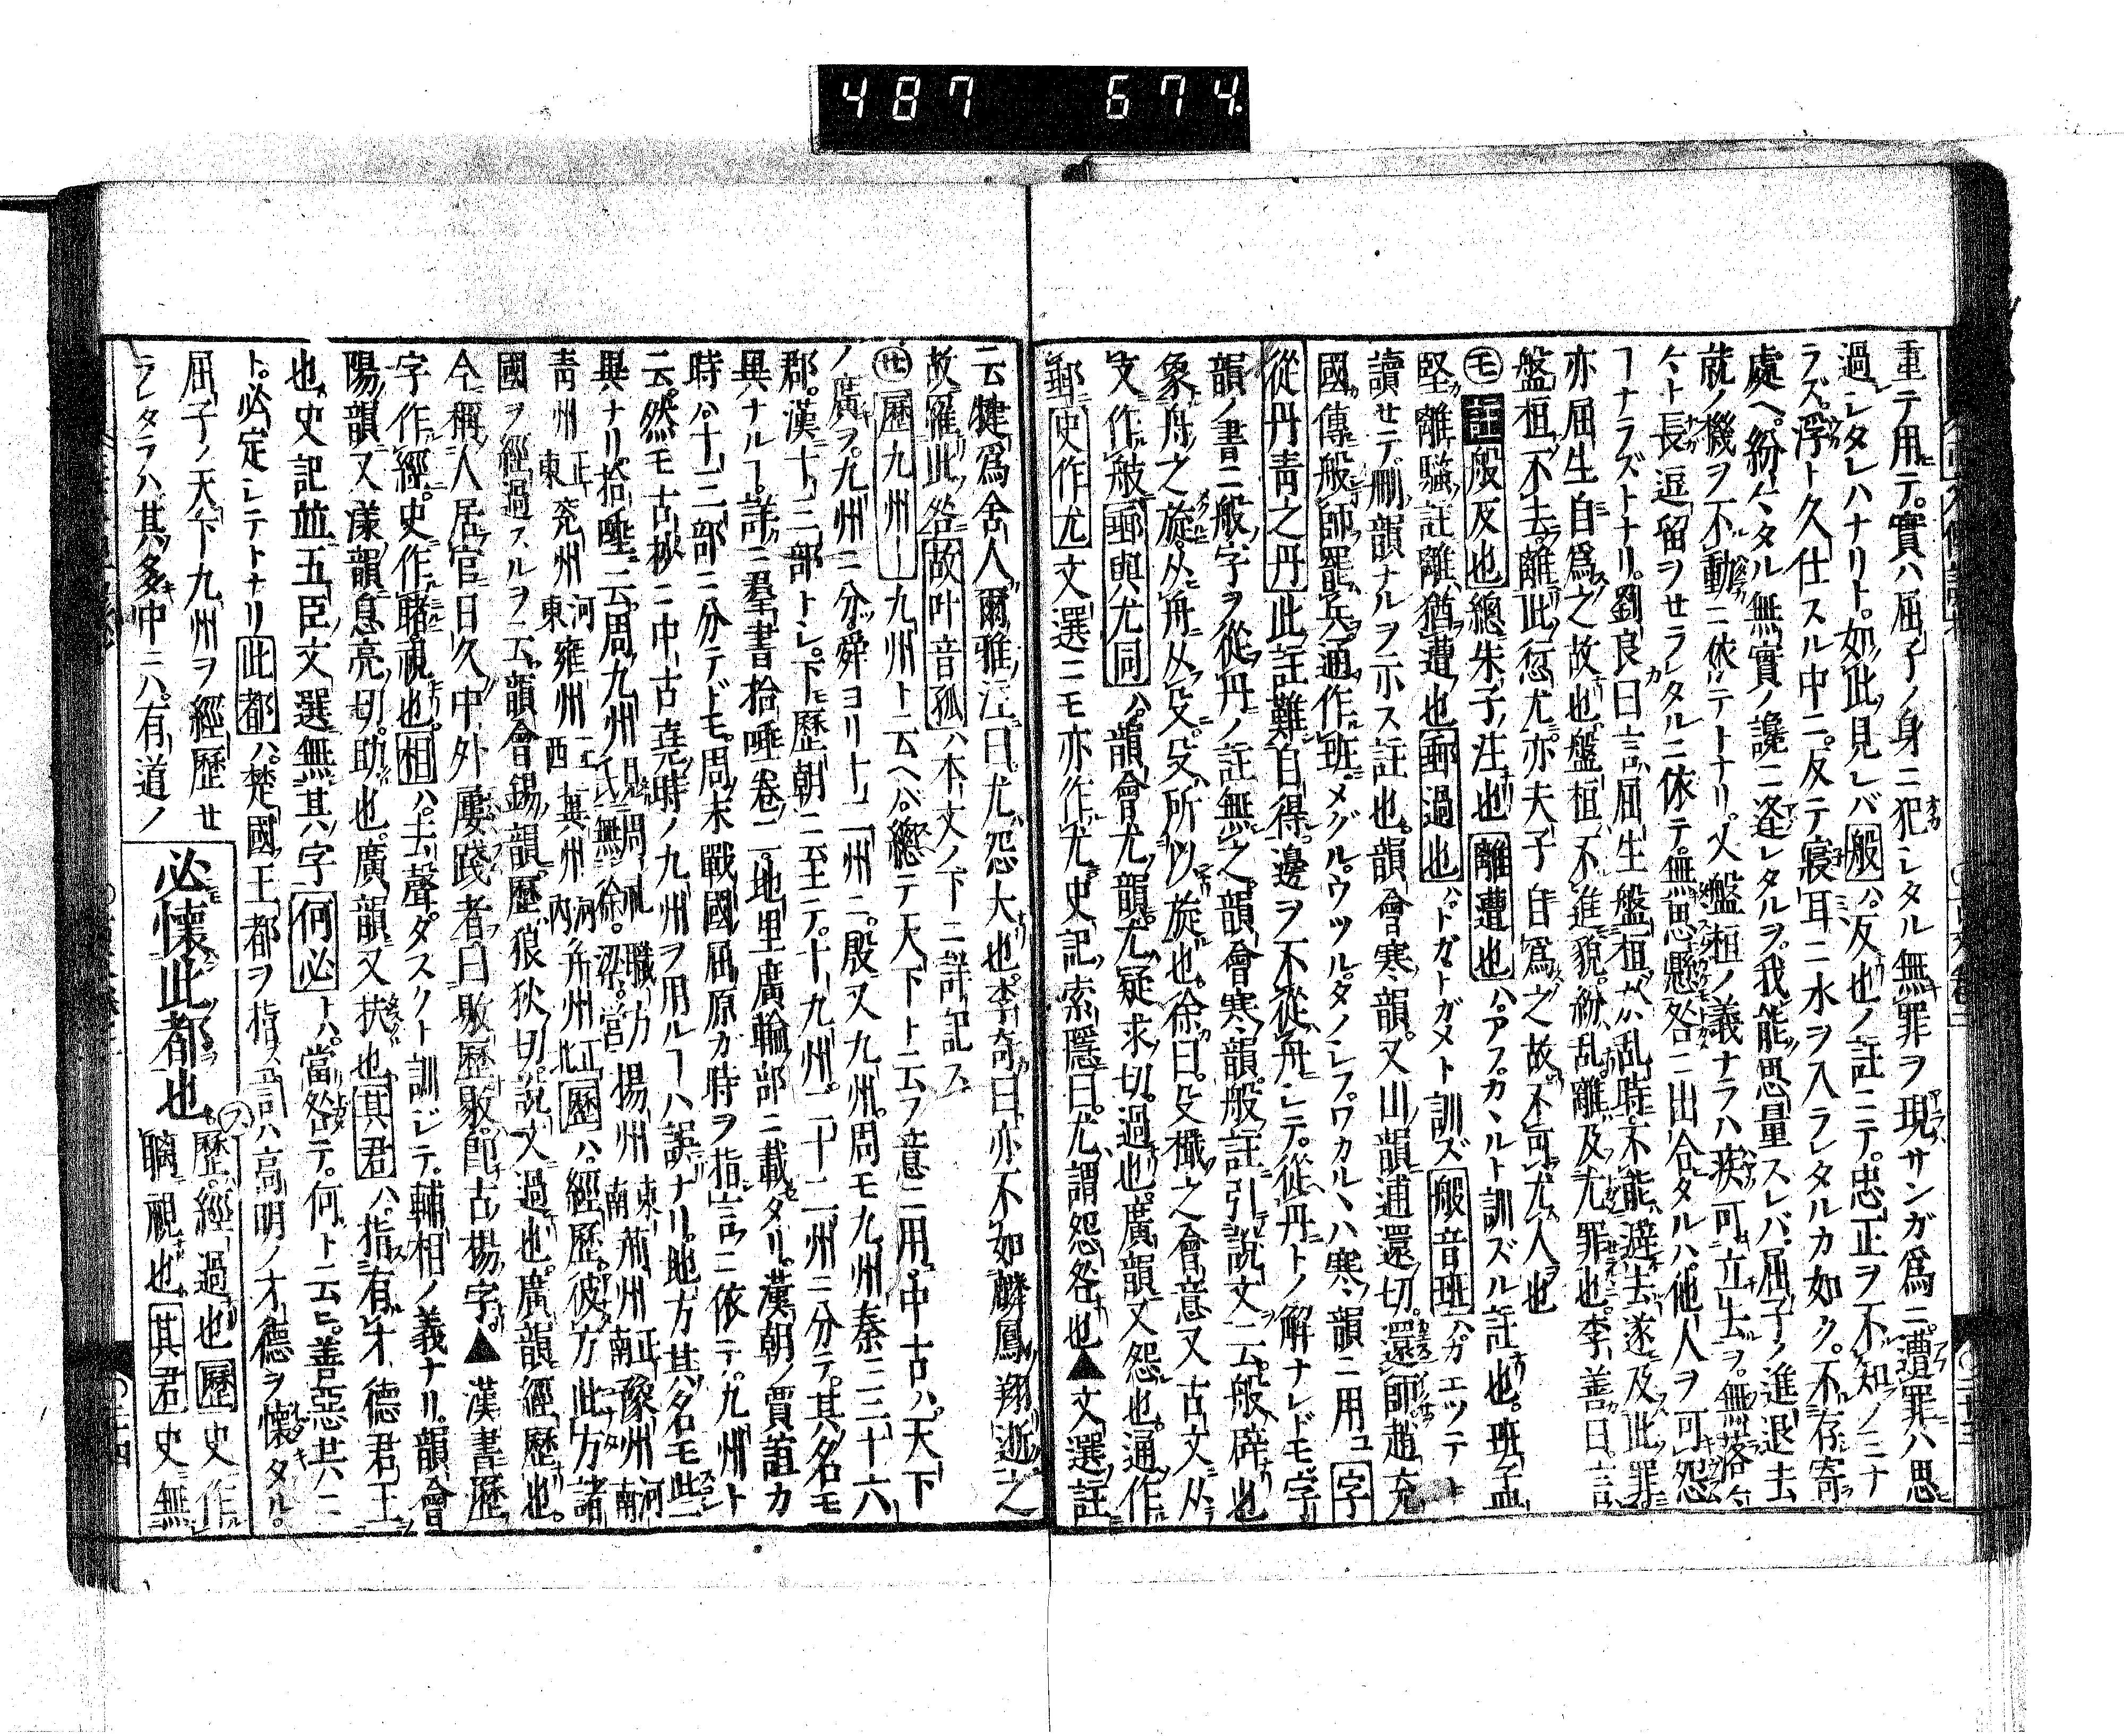 487 674
重テ用テ。實ハ屈子ノ身ニ犯レタル無罪ヲ現サンガ爲ニ。遭罪ハ思
過レタレハナリト。如此見レバ般ハ。反也ノ註ニテ。忠正ヲ不知ノミナ
ラズ。浮ト久仕スル中ニ。反テ寝耳ニ水ヲ入ラレタルカ如ク。不存寄
處ヘ。紛々タル無實ノ讒ニ逢レタルヲ。我能思量スレバ。屈子ノ進退去
就ノ機ヲ不動ニ依テトナリ。又盤桓ノ義ナラハ疾可立去ヲ。無落ケ
々ト長逗留ヲセラレタルニ依テ。無思懸咎ニ出合タルハ。他人ヲ可怨
ヿナラズトナリ。劉良曰言屈生盤桓於乱時。不能避去遂及此罪
亦屈生自爲之故也。盤桓不進貌。紛乱離及尤罪也。李善曰。言
盤桓不去。離此愆尤。亦夫子自爲之故。不可尤人也
註般反也總朱子ノ注也離遭也ハ。アフ。カヽルト訓ズル註也。班孟
堅離騷註離。猶遭也郵過也ハ。トガ。トガメト訓ズ般音班ハ。カエツテト
讀セテ。刪韻ナルヲ示ス註也。韻會寒韻。又山韻逋還切。還師。趙充
國傳般師罷兵。通作班。メグル。ウツル。タノシフ。ワカルヽハ寒韻ニ用ユ字
從丹青之丹此註難自得。邊ヲ不從舟シテ。從丹トノ解ナレドモ。字
韻ノ書ニ般字ヲ從丹ノ註無之。韻會寒韻。般註引說文云。般辟也
象舟之旋。从舟从殳。殳所以旋也。徐曰。殳檝之會意又古文从
攴作㪵郵與尤同ハ。韻會尤韻。尤疑求切。過也。廣韻又怨也。通作
郵史作尤文選ニモ亦作尤。史記索隱曰。尤謂怨咎也▲文選註
云犍爲舍人爾雅注曰。尤怨大也。李奇曰。亦不如麟鳳翔逝之
故。罹此咎故叶音孤ハ本文ノ下ニ詳記ス
歷九州九州ト云ヘハ。總テ天下ト云フ意ニ用。中古ハ。天下
ノ廣ヲ。九州ニ分。舜ヨリ十二州ニ。殷又九州。周モ九州秦ニ三十六
郡。漢十三部トシ。下歷朝ニ至テ。十九州。二十二州ニ分テ。其名モ
異ナルヿ。詳ニ羣書拾唾卷二。地里廣輪部ニ載タリ。漢朝ノ賈誼カ
時ハ。十三部ニ分テドモ。周末戰國屈原カ時ヲ指言ニ依テ。九州ト
云。然モ古抄ニ中古堯時ノ九州ヲ用ルヿハ誤ナリ。地方其名モ些
異ナリ。拾唾云周九州 職方 揚州東南荊州正南豫州河南
青州正東兗州河東雍州正西冀州河內并州正北歷ハ。經歷。彼方此方諸
國ヲ經過スルヲ云。韻會錫韻。歷狼狄切。說文過也。廣韻經歷也。
今稱人居官日久。中外屢踐者。曰敭歷。敭。卽古揚字。▲漢書歷
字作經。史作瞝。視也相ハ。去聲。タスクト訓ジテ。輔相ノ義ナリ。韻會
陽韻又漾韻。息亮切。助也。廣韻又扶也其君ハ。指有才德君王
也。史記並五臣文選無其字何必トハ。當咎テ。何ト云ヒ。善惡共ニ
ト。必定シテトナリ此都ハ。楚國王都ヲ指ス言ハ高明ノ才德ヲ懷タル。
屈子ノ天下九州ヲ經歷セ
ラレタラハ其多中ニハ。有道ノ
必懷此都也
歷。經過也歷史作
瞝視也其君史無